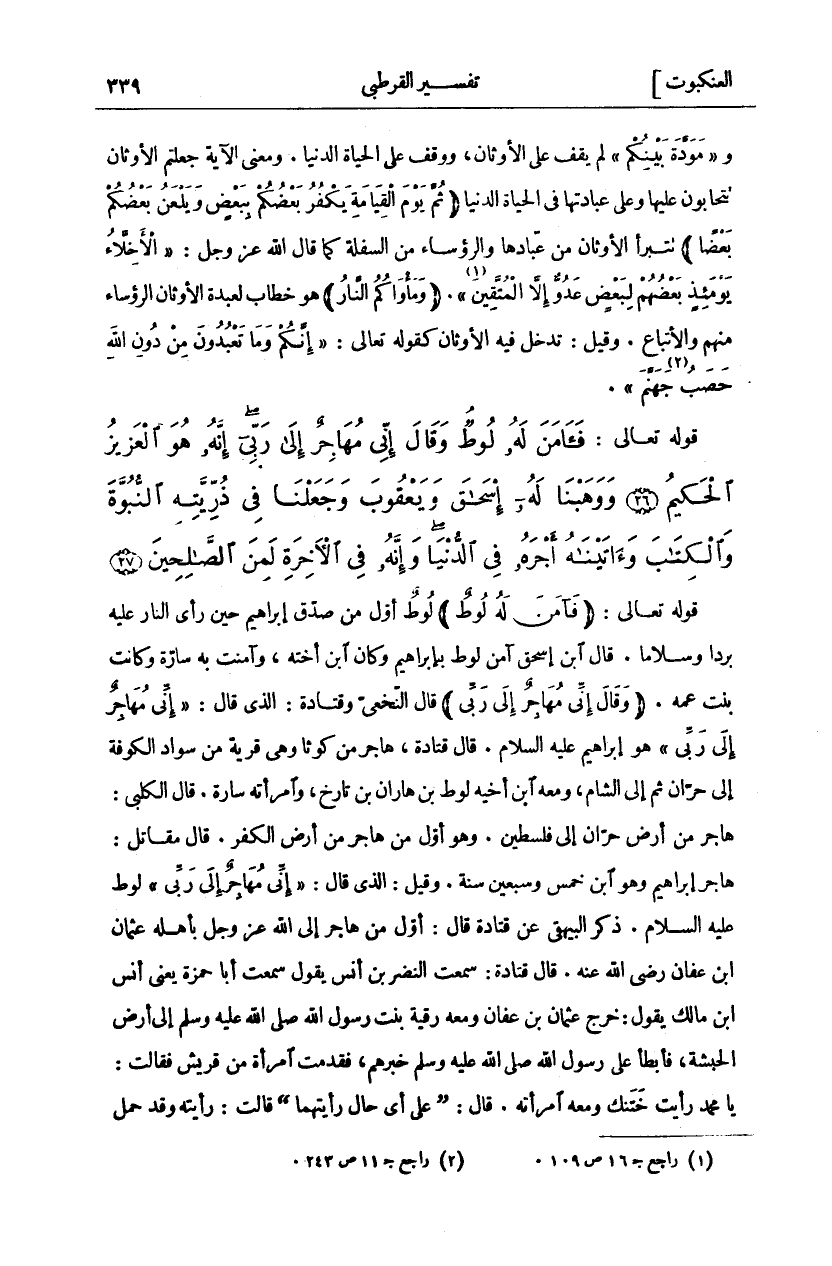 العنكبوت ] تفسير القرطبى ٣٣٩
و « مَوَدَّةَ بَيْنِكُمْ » لم يقف على الأوثان، ووقف على الحياة الدنيا . ومعنى الآية جعلتم الأوثان
نتحابون عليها وعلى عبادتها فى الحياة الدنيا ﴿ ثُمَّ يَوْمَ الْقِيَامَةِ يَكْفُرُ بَعْضُكُمْ بِبَعْضٍ وَيَلْعَنُ بَعْضُكُمْ
بَعْضًا ﴾ نتبرأ الأوثان من عبّادها والرؤساء من السفلة كما قال الله عز وجل : « الْأَخِلَّاءُ
يَوْمَئِذٍ بَعْضُهُمْ لِبَعْضٍ عَدُوٌّ إِلَّا الْمُتَّقِينَ (١) » . ﴿ وَمَأْوَاكُمُ النَّارُ ﴾ هو خطاب لعبدة الأوثان الرؤساء
منهم والأتباع . وقيل : تدخل فيه الأوثان كقوله تعالى : « إِنَّكُمْ وَمَا تَعْبُدُونَ مِنْ دُونِ اللَّهِ
حَصَبُ جَهَنَّمَ (٢) » .
قوله تعالى : فَـَٔامَنَ لَهُۥ لُوطٌ وَقَالَ إِنِّى مُهَاجِرٌ إِلَىٰ رَبِّىٓ إِنَّهُۥ هُوَ ٱلْعَزِيزُ
ٱلْحَكِيمُ ٢٦ وَوَهَبْنَا لَهُۥٓ إِسْحَٰقَ وَيَعْقُوبَ وَجَعَلْنَا فِى ذُرِّيَّتِهِ ٱلنُّبُوَّةَ
وَٱلْكِتَٰبَ وَءَاتَيْنَٰهُ أَجْرَهُۥ فِى ٱلدُّنْيَا وَإِنَّهُۥ فِى ٱلْأَخِرَةِ لَمِنَ ٱلصَّٰلِحِينَ ٢٧
قوله تعالى : ﴿ فَآمَنَ لَهُ لُوطٌ ﴾ لُوطٌ أوّل من صدّق إبراهيم حين رأى النار عليه
بردا وسلاما . قال ٱبن إسحق آمن لوط بإبراهيم وكان ٱبن أخته ، وآمنت به سارّة وكانت
بنت عمه . ﴿ وَقَالَ إِنِّى مُهَاجِرٌ إِلَى رَبِّى ﴾ قال النّخعىّ وقتادة : الذى قال : « إِنِّى مُهَاجِرٌ
إِلَى رَبِّى » هو إبراهيم عليه السلام . قال قتادة ، هاجر من كوثا وهى قرية من سواد الكوفة
إلى حرّان ثم إلى الشام، ومعه ٱبن أخيه لوط بن هاران بن تارخ، وٱمرأته سارة . قال الكلبى :
هاجر من أرض حرّان إلى فلسطين . وهو أوّل من هاجر من أرض الكفر . قال مقاتل :
هاجر إبراهيم وهو ٱبن خمس وسبعين سنة . وقيل : الذى قال : « إِنِّى مُهَاجِرٌ إِلَى رَبِّى » لوط
عليه السلام . ذكر البيهقى عن قتادة قال : أوّل من هاجر إلى الله عز وجل بأهله عثمان
ابن عفان رضى الله عنه . قال قتادة : سمعت النضر بن أنس يقول سمعت أبا حمزة يعنى أنس
ابن مالك يقول : خرج عثمان بن عفان ومعه رقية بنت رسول الله صلى الله عليه وسلم إلى أرض
الحبشة، فأبطأ على رسول الله صلى الله عليه وسلم خبرهم، فقدمت ٱمرأة من قريش فقالت :
يا محمد رأيت خَتَنك ومعه ٱمرأته . قال : " على أى حال رأيتهما " قالت : رأيته وقد حمل
(١) راجع جـ ١٦ ص ١٠٩ . (٢) راجع جـ ١١ ص ٢٤٣ .